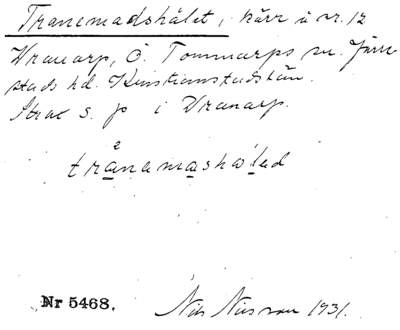 Tranemadshålet, kärr å nr. 12
Vranarp, Ö. Tommarps sn. Järre
stads hd. Kristianstads län.
Strax s. p i Vranarp.
trånamashålad
Nr 5468.
Nils Nilsson 1931.